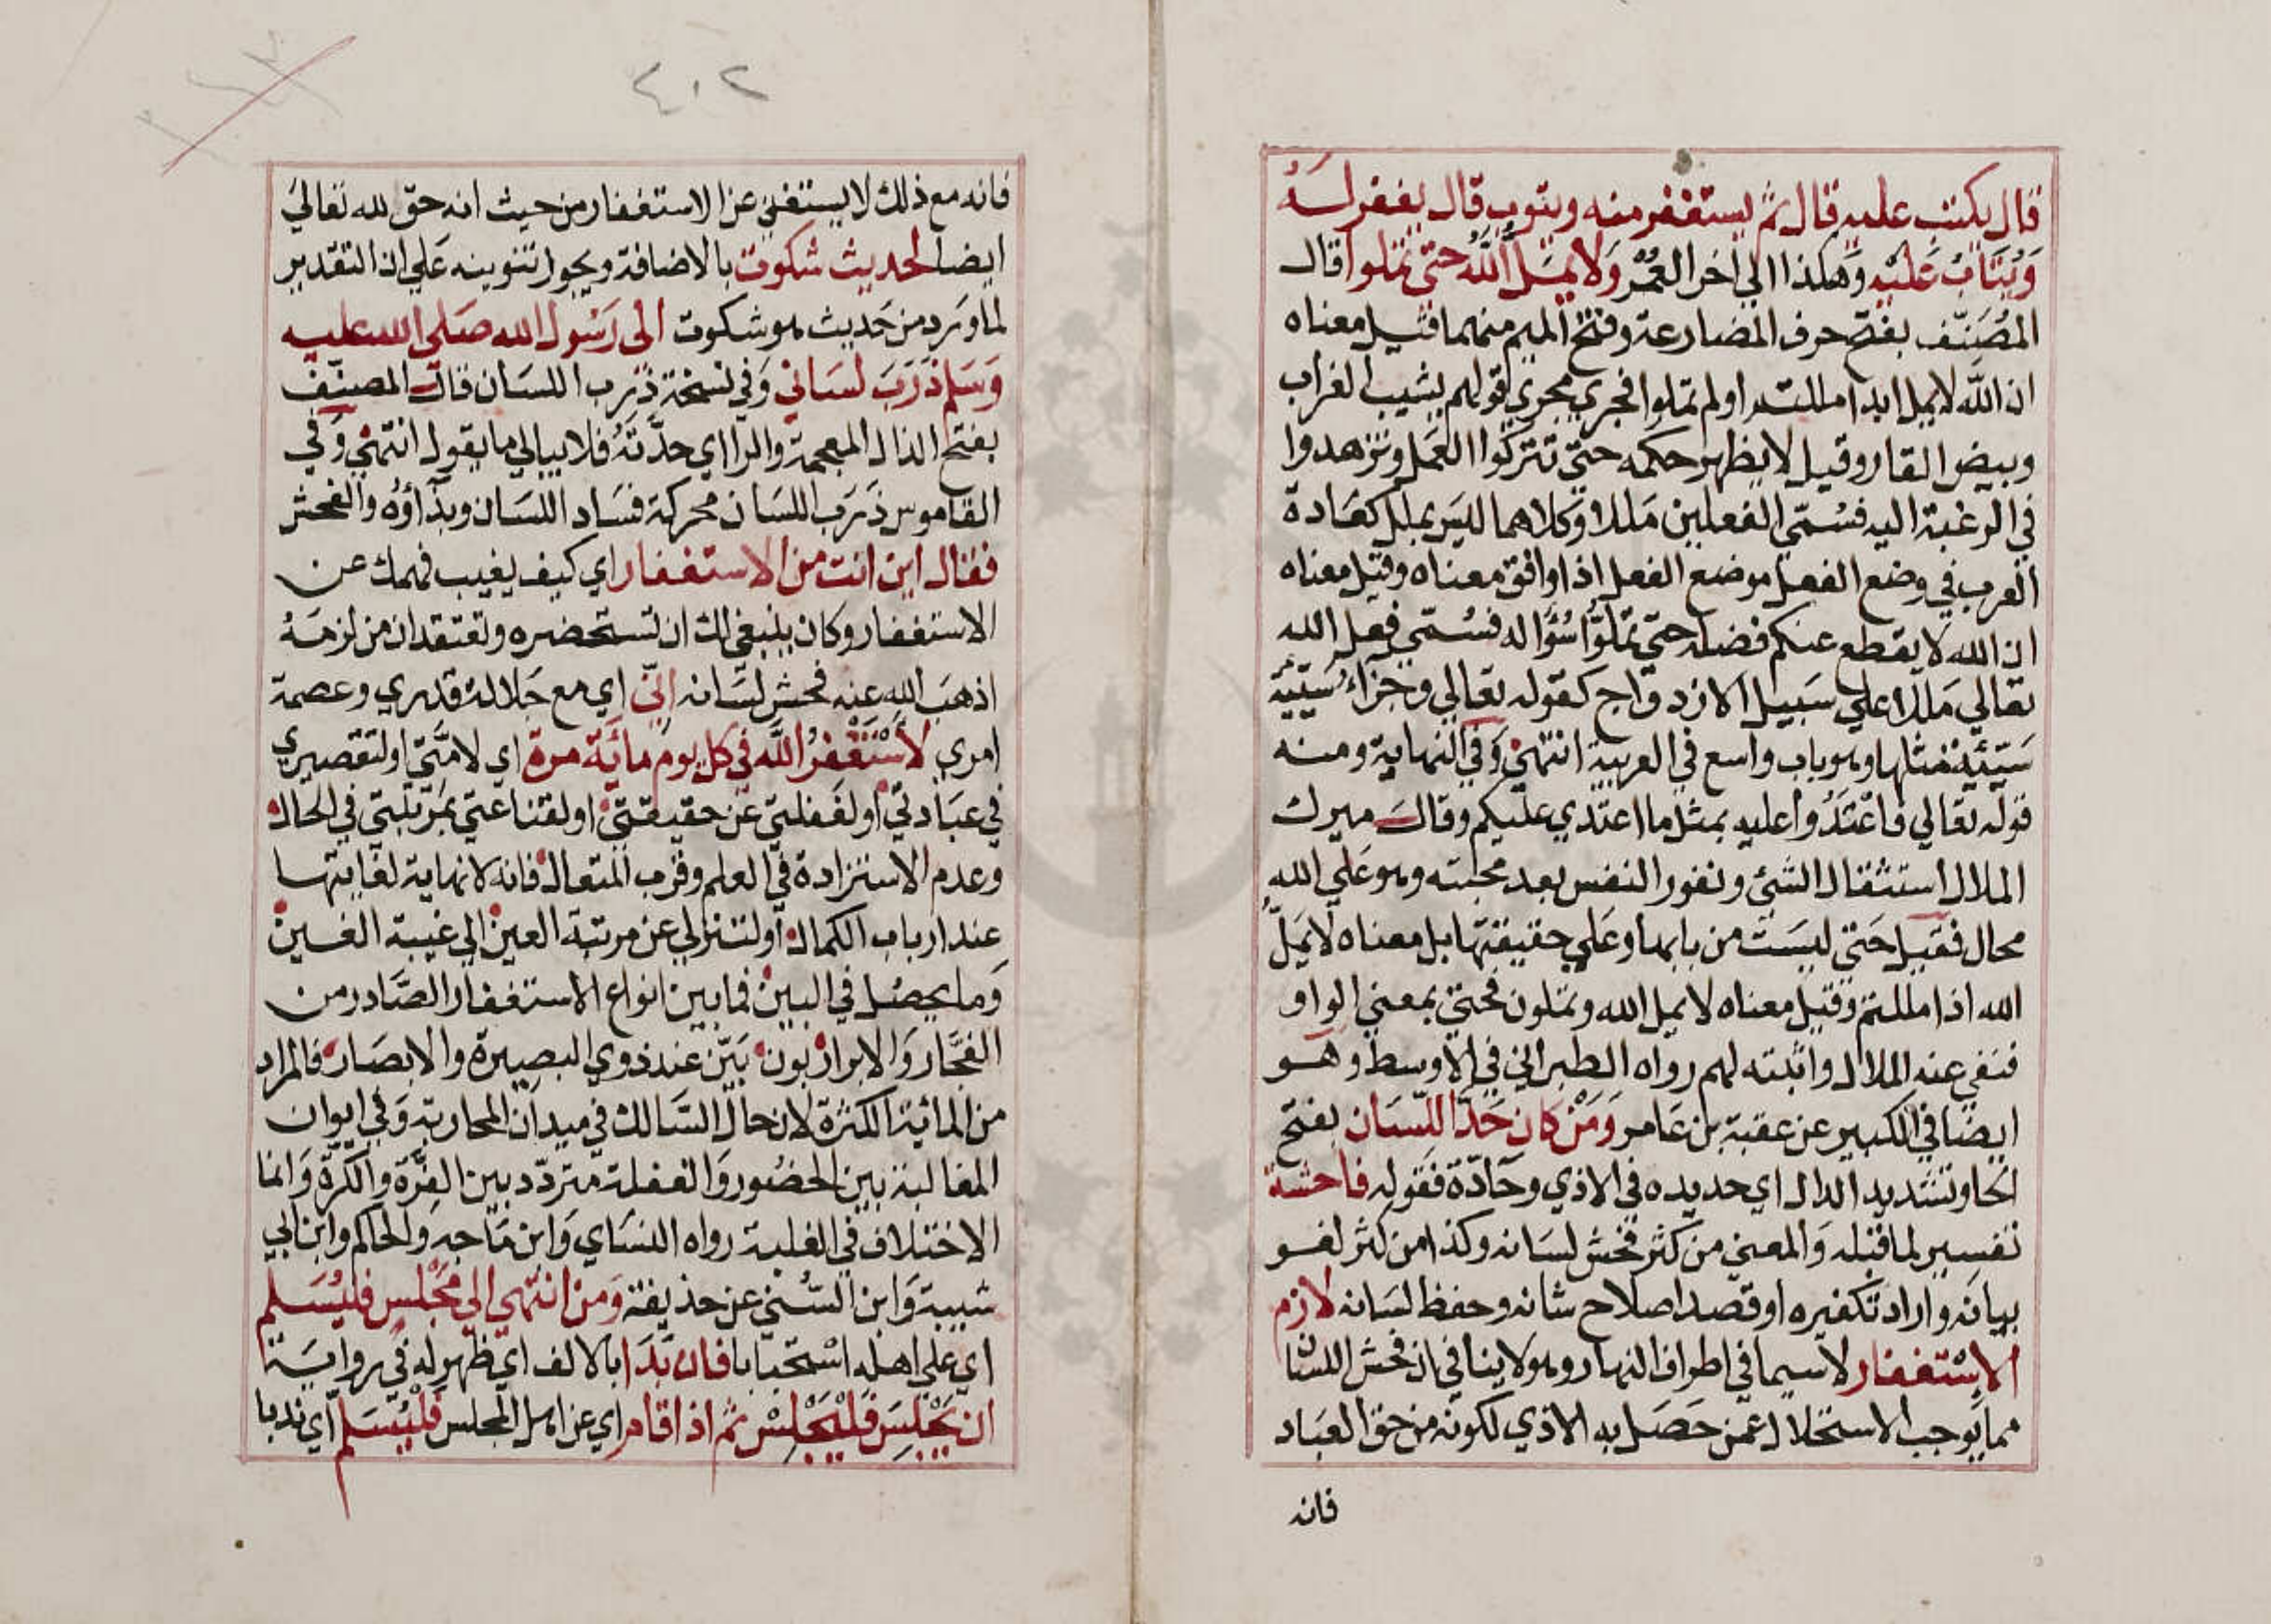 قال يكتب عليه قال ثم يستغفر منه ويتوب قال يغفر له
وَيُتَابُ عَليْهِ وَهكذا الي اخر العُمُر وَلا يمَلُّ اللَّهُ حتّى تملوا قال
المُصَنِّف بفتح حرف المضارعة وفتح الميم منهما قيل معناه
ان اللَّه لا يمل ابدا مللتم او لم تملوا فجري مجري قولهم يشيب الغراب
ويبيض القار وقيل لا يظهر حكمه حتّي تتركوا العَمل وتزهدوا
في الرغبة اليه فسُمّي الفعلين مَللا وَكلاهما ليسَ بملل كعَادة
العرب في وضع الفعل موضع الفعل اذا وافق معناه وقيل معناه
ان الله لا يقطع عنكم فضله حتّي تملوُّا سُؤاله فسُمّي فعل الله
تعَالي مَللا علي سَبيل الازدواج كقوله تعَالي وجَزاءُ سَيّئة
سَيّئة مثلها وهو باب واسع في العربية انتهي وَفي النهاية ومنه
قوله تعَالي فاعْتَدُوا عليه بمثل ما اعتدي عليكم وقال ميرك
الملال استثقال الشئ ونفور النفس بعد محبته وهو عَلي الله
محال فقيل حَتي ليسَت من بابها وعَلي حقيقتها بل معناه لا يمَلّ
الله اذا مللتم وقيل معناه لا يمل الله وتملون فحتي بمعني الواو
فنفي عنه الملال واثبته لهم رواه الطبراني في الاوسط وهو
ايضا في الكبير عن عقبة بن عَامر وَمَنْ كان حَدَّ اللّسَان بفتح
الحا وتشديد الدال اي حديده في الاذي وحَادّة فقوله فاحشة
تفسير لما قبله وَالمعني من كثر فحش لسَانه وكذا من كثر لغو
بيانه واراد تكفيره او قصد اصلاح شانه وحفظ لسَانه لازم
الاسْتغفار لا سيما في اطراف النهار وهو لا ينافي ان فحش اللسان
مما يُوجب الاستحلال عمن حَصَل به الاذي لكونه من حق العبَاد
فانه
٤٠٢
فانه مع ذلك لا يستغني عن الاستغفار من حيث انه حقّ لله تعالي
ايضا لحديث شكوت بالاضافة ويجوز تنوينه عَلي ان التقدير
لما ورد من حَديث هو شكوت الى رَسُول الله صَلى الله عليه
وَسَلم ذَرَبَ لسَاني وَفي نسخة ذرب اللسَان قالَ المصنّف
بفتح الذال المعجمة والرا اي حدَّتهُ فلا يبالي ما يقول انتهي وَفي
القاموس ذَرَب اللسَان محركة فسَاد اللسَان وبذاؤه والفحش
فقال اين انت من الاستغفار اي كيف يغيب فهمك عن
الاستغفار وكان ينبغي لك ان تستحضره وتعتقد ان من لزمَهُ
اذهبَ الله عنه فحش لسَانه إنّي اي مع جَلالة قدري وعصمة
امري لأسْتَغْفرُ اللَّه في كل يوم مائة مرة اي لامَّتي او لتقصيري
في عبَادتي او لغفلتي عن حقيقتي او لقناعتي بمَرْتبتي في الحال
وعدم الاستزادة في العلم وقرب المتعال فانه لا نهاية لغايتها
عند ارباب الكمال او لتنزلي عن مرتبة العين الي غيبة الغين
وَما يحصُل في البين فما بين انواع الاستغفار الصَّادر من
الفجَّار وَالابرار بون بَيّن عند ذوي البصيرة والابصَار فالمراد
من المائة الكثرة لان حال السَّالك في ميدان المحاربة وَفي ايوان
المغالبة بين الحضُور وَالغفلة متردّد بين الفرَّة والكرّة وَانما
الاختلاف في الغلبة رواه النسَاي وَابن مَاجه وَالحاكم وابن ابي
شيبة وَابن السُّني عن حذيفة وَمن انتهي الي مَجْلس فليُسَلم
اي علي اهله اسْتحبَابا فان بَدَا بالالف اي ظهر له في رواية
ان يَجْلِسَ فَلْيَجْلِسْ ثم اذا قام اي عن اهل المجلس فَلْيُسَلم اي ندبا